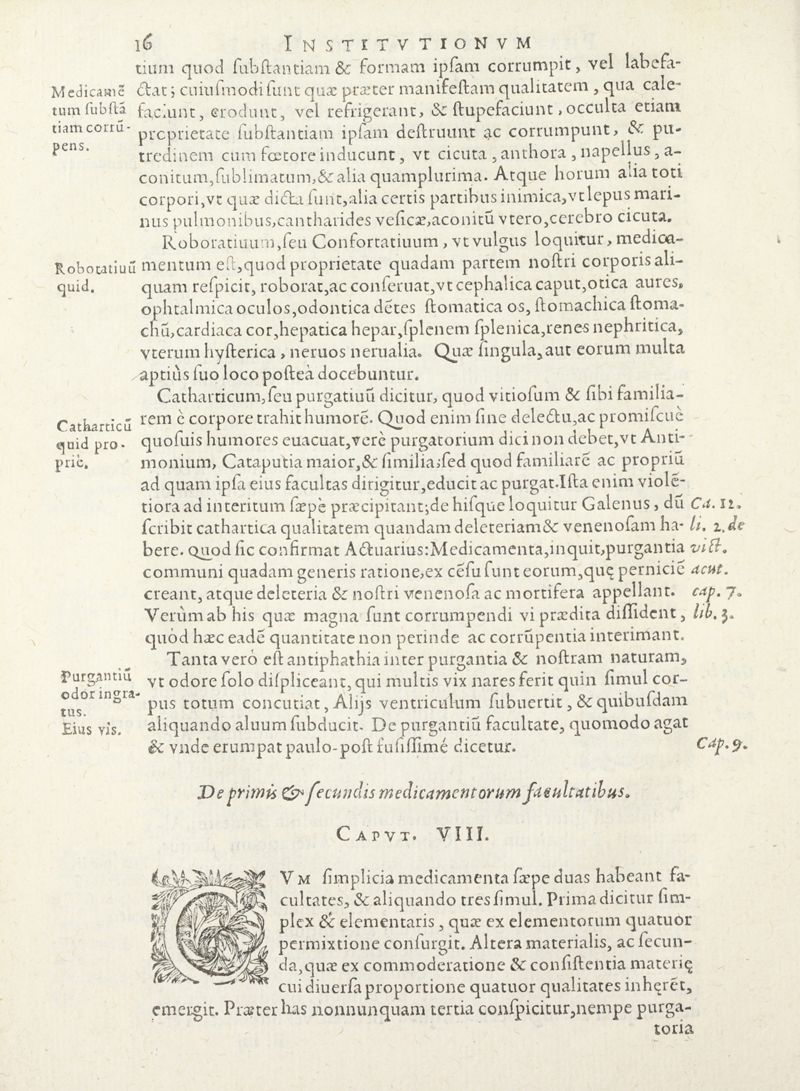 16 INSTITVTIONVM
tium quod ſubſtantiam & formam ipſam corrumpit, vel labefa-
Medicamē ctat; cuiuſmodi ſunt quæ præter manifeſtam qualitatem, qua cale-
tum ſubſtā faciunt, erodunt, vel refrigerant, & ſtupefaciunt, occulta etiam
tiam corrū- proprietate ſubſtantiam ipſam deſtruunt ac corrumpunt, & pu-
pens. tredinem cum fœtore inducunt, vt cicuta, anthora, napellus, a-
conitum, ſublimatum, & alia quamplurima. Atque horum alia toti
corpori, vt quæ dicta ſunt, alia certis partibus inimica, vt lepus mari-
nus pulmonibus, cantharides veſicæ, aconitū vtero, cerebro cicuta.
Roboratiuum, ſeu Confortatiuum, vt vulgus loquitur, medica-
Roboratiuū mentum eſt, quod proprietate quadam partem noſtri corporis ali-
quid. quam reſpicit, roborat, ac conſeruat, vt cephalica caput, otica aures,
ophtalmica oculos, odontica dētes ſtomatica os, ſtomachica ſtoma-
chū, cardiaca cor, hepatica hepar, ſplenem ſplenica, renes nephritica,
vterum hyſterica, neruos nerualia. Quæ ſingula, aut eorum multa
aptiùs ſuo loco poſteà docebuntur.
Catharticum, ſeu purgatiuū dicitur, quod vitioſum & ſibi familia-
Catharticū rem è corpore trahit humorē. Quod enim ſine delectu, ac promiſcuè
quid pro- quoſuis humores euacuat, verè purgatorium dici non debet, vt Anti-
priè. monium, Cataputia maior, & ſimilia; ſed quod familiarē ac propriū
ad quam ipſa eius facultas dirigitur, educit ac purgat. Iſta enim violē-
tiora ad interitum ſæpè præcipitant; de hiſque loquitur Galenus, dū Ca. 11.
ſcribit cathartica qualitatem quandam deleteriam & venenoſam ha- li. 2. de
bere. Quod ſic confirmat Actuarius: Medicamenta, inquit, purgantia vict.
communi quadam generis ratione, ex cēſu ſunt eorum, quę perniciē acut.
creant, atque deleteria & noſtri venenoſa ac mortifera appellant. cap. 7.
Verùm ab his quæ magna ſunt corrumpendi vi prædita diſſident, lib. 3.
quòd hæc eadē quantitate non perinde ac corrūpentia interimant.
Tanta verò eſt antiphathia inter purgantia & noſtram naturam,
Purgantiū vt odore ſolo diſpliceant, qui multis vix nares ferit quin ſimul cor-
odor ingra- pus totum concutiat, Alijs ventriculum ſubuertit, & quibuſdam
tus.
Eius vis. aliquando aluum ſubducit. De purgantiū facultate, quomodo agat
& vnde erumpat paulo-poſt fuſiſſimé dicetur. Cap. 9.
De primis & ſecundis medicamentorum facultatibus.
CAPVT. VIII.
CVM ſimplicia medicamenta ſæpe duas habeant fa-
cultates, & aliquando tres ſimul. Prima dicitur ſim-
plex & elementaris, quæ ex elementorum quatuor
permixtione conſurgit. Altera materialis, ac ſecun-
da, quæ ex commoderatione & conſiſtentia materię
cui diuerſa proportione quatuor qualitates inhęrēt,
emergit. Præter has nonnunquam tertia conſpicitur, nempe purga-
toria